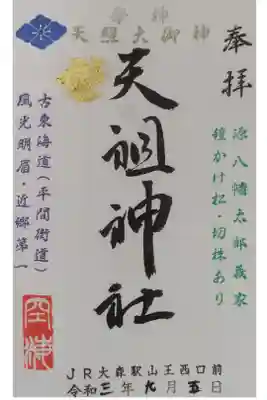 奉拝
源八幡太郎義家
鎧かけ松・切株あり
祭神
天照大御神
天祖神社
古東海道（平間街道）
風光明眉・近郷第一
JR大森駅山王西口前
令和三年九月五日